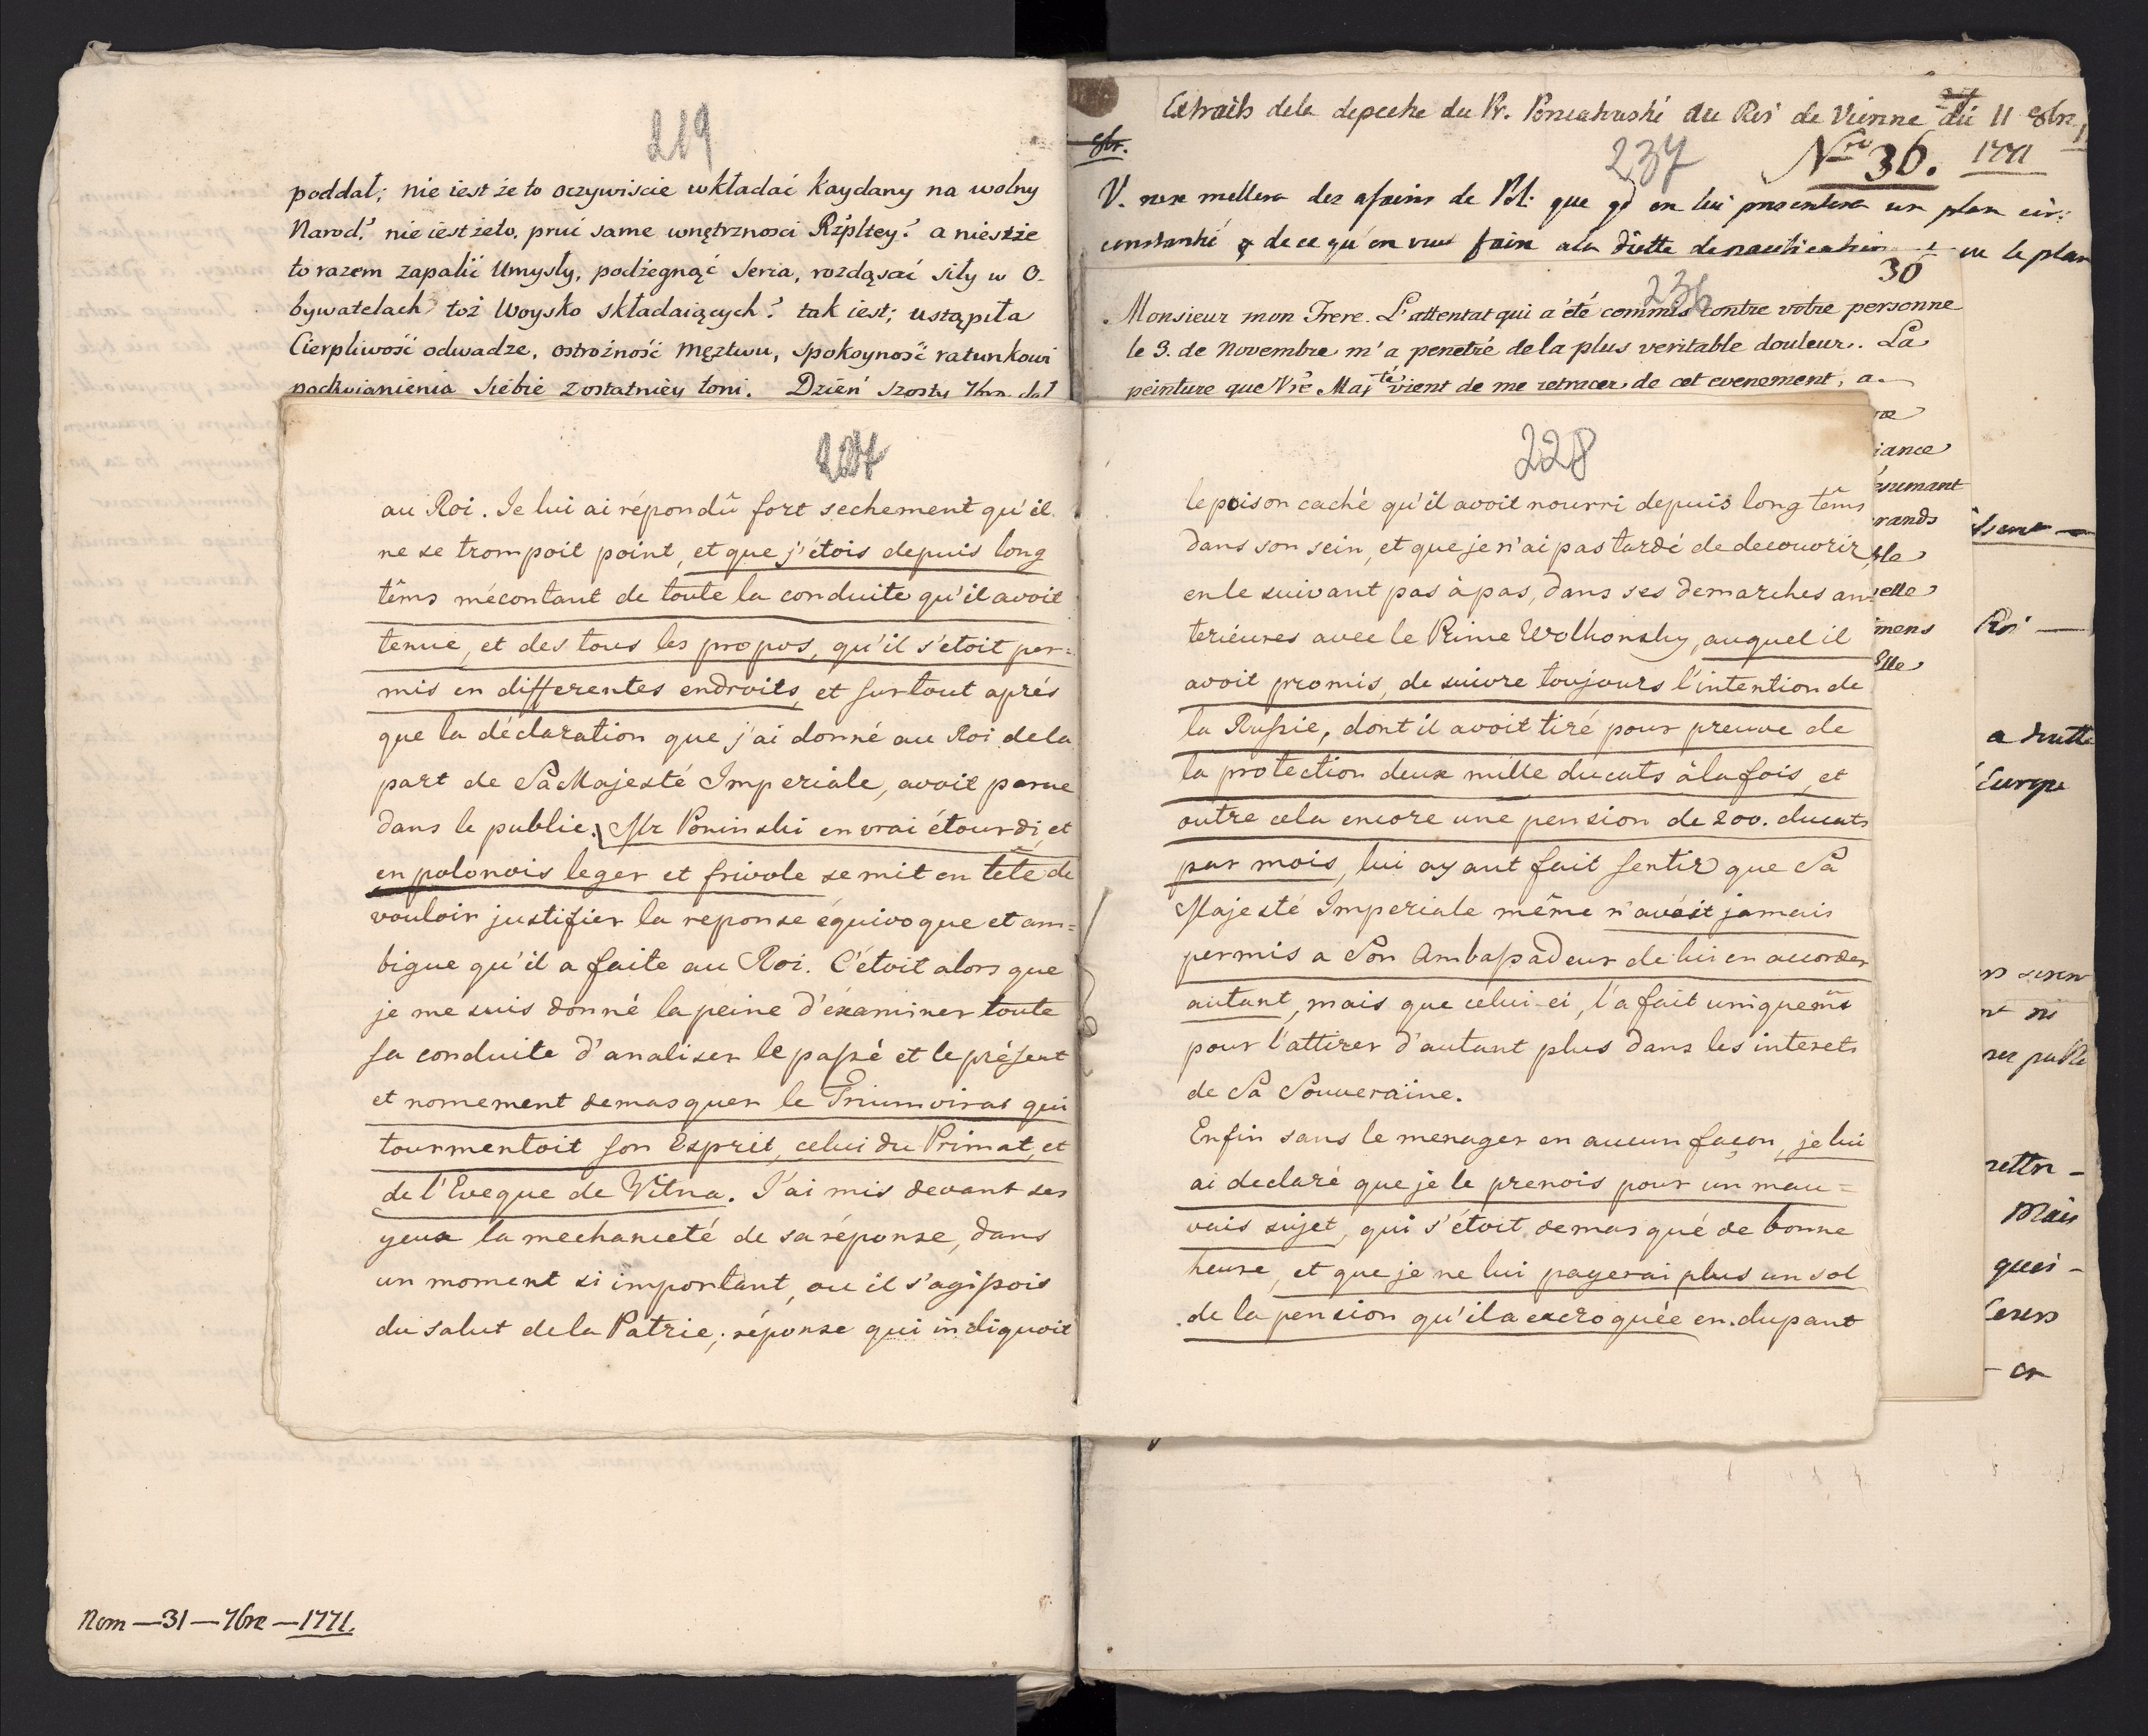 219
poddał; nie iest że to oczywiscie wkładać kaydany na wolny
Narod? nie iest żeto, pruć same wnętrznosci Rzpltey? a nieszże
to razem zapalić Umysły, podżegnąć Serca, rozdąsać siły w O-
bywatelach toż Woysko składaiących? tak iest; ustąpiła
Cierpliwość odwadze, ostrożność męztwu, spokoyność ratunkowi
podźwignienia siebie z ostatniéy toni. Dzień szosty 7bra dał
Nom — 31 — 7bre — 1771.
227
au Roi. Je lui ai répondû fort sechement qu'il
ne se trompoit point, et que j'étois depuis long
têms mécontant de toute la conduite qu'il avoit
tenue, et des tous les propos, qu'il s'etoit per=
mis en differentes endroits, et surtout aprés
que la déclaration que j'ai donné au Roi de la
part de Sa Majesté Imperiale, avoit parue
dans le public. Mr Poninski en vrai étourdi, et
en polonois leger et frivole se mit en tête de
vouloir justifier la reponse équivoque et am=
bigue qu'il a faite au Roi. C'étoit alors que
je me suis donné la peine d'éxaminer toute
sa conduite d'analiser le passé et le présent
et nomement demasquer le Triumvirat qui
tourmentoit son Esprit, celui du Primat, et
de l'Eveque de Vilna. J'ai mis devant ses
yeux la mechanceté de sa réponse, dans
un moment si important, ou il s'agissois
du salut de la Patrie; réponse qui indiquoit
228
le poison caché qu'il avoit nourri depuis long têms
dans son sein, et que je n'ai pas tardé de decouvrir
en le suivant pas à pas, dans ses demarches an=
terieures avec le Prince Wolkonsky, auquel il
avoit promis, de suivre toujours l'intention de
la Russie, dont il avoit tiré pour preuve de
la protection deux mille ducats à la fois, et
outre cela encore une pension de 200. ducats
par mois, lui ayant fait sentir que Sa
Majesté Imperiale même n'avoit jamais
permis a Son Ambassadeur de lui en accorder
autant, mais que celui-ci, l'a fait uniquemt
pour l'attirer d'autant plus dans les interets
de Sa Souveraine.
Enfin sans le menager en aucun façon, je lui
ai declaré que je le prenois pour un mau=
vais sujet, qui s'étoit demasqué de bonne
heure, et que je ne lui payerai plus un sol
de la pension qu'il a excroquée en dupant
Extraits dela depeche du Pr. Poniatowski au Roi de Vienne du 11 8bre
8br.
237
Nro 36. 1771
V. nex mettera des afairs de Pol: que qd on lui presentera un plan cir:
constantié & de ce qu'on veut faire a la diette de pacification ou le plan
30
236
Monsieur mon Frere. L'attentat qui a été commis contre votre personne
le 3. de Novembre m'a penetré de la plus veritable douleur. La
peinture que Vre Majté vient de me retracer de cet evenement, a
iance
esumant
rands
ble
elle
mens
Elle
Roi —
Europe
Mais